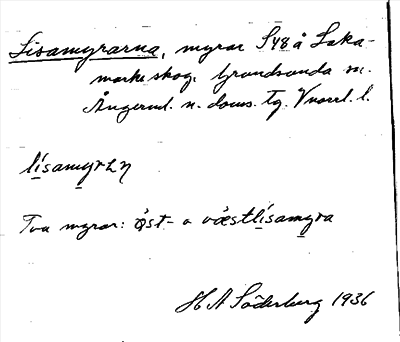 Lisamyrarna, myrar S48 å Laka-
marks skog, Grundsunda sn.
Ångerml. n. doms. Tg. Vnorrl. l.
lísamyrɩn
Två myrar: öst- o väestlísamyra
H A Söderberg 1936